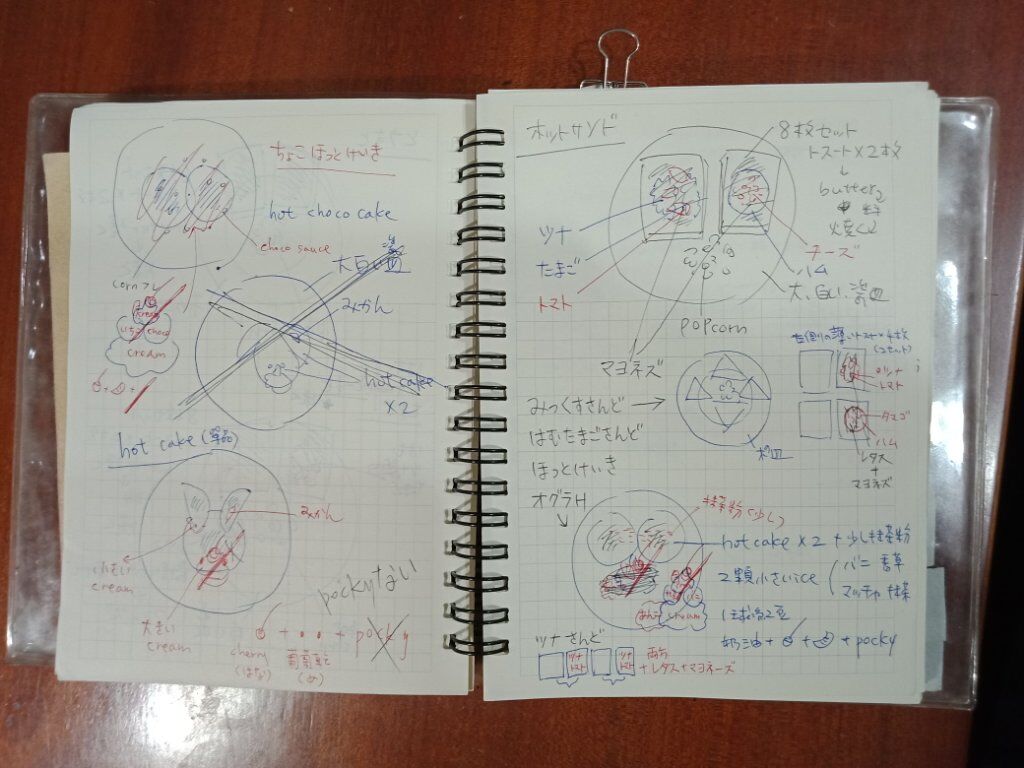 ちょこほっとけいき
hot choco cake
choco sauce
大白い皿
cornフレ
cream
いちご choco
cream
みかん
hot cake
×2
hot cake (単品)
みかん
小さい
cream
pockyない
大きい
cream
cherry
(はな)
+ •• +
葡萄乾
(め)
pocky
ホットサンド
8枚セット
トースート×2枚
↓
butter
ツナ
たまご
トマト
チーズ
ハム
大、白い、
popcorn
マヨネズ
みっくすさんど →
はむたまごさんど
ほっとけいき
オグラH
↓
ツナ
トマト
タマゴ
ハム
レタス
+
マヨネーズ
抹茶粉(少し)
hot cake ×2 + 少し抹茶粉
2顆小さいice
バニ 香草
マッチャ 抹茶
cream
奶油 + + + pocky
ツナさんど
ツナ
トマト
ツナ
トマト
両方
+レタス+マヨネーズ